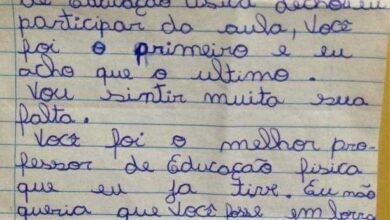 de Educação fisica deichou eu
participar da aula, Você
foi o primeiro e eu
acho que o ultimo.
Vou sintir muita sua
falta.
Você foi o melhor pro-
fessor de Educação fisica
que eu ja tive. Eu não
queria que Você fose embora